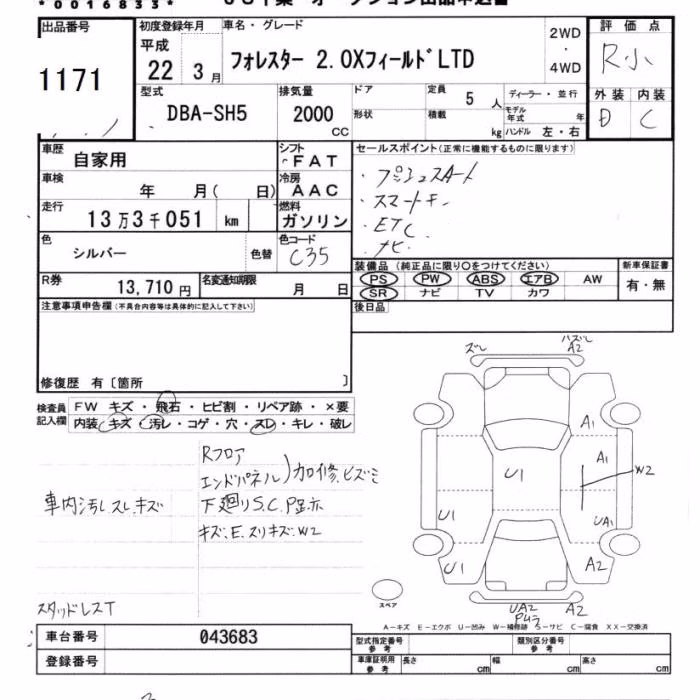 *0016833*
出品番号
1171
初度登録年月
平成
22 3月
車名・グレード
フォレスター 2.0XフィールドLTD
2WD
・
4WD
評価点
R小
外装 内装
D C
型式
DBA-SH5
排気量
2000
CC
ドア
形状
定員 5 人
積載 kg
ディーラー・並行
モデル年式 年
ハンドル 左・右
車歴
自家用
シフト
FAT
車検
年 月( 日)
冷房
AAC
走行
13万3千051 km
燃料
ガソリン
色
シルバー
色替
色コード
C35
R券
13,710円
名変通知期限
月 日
セールスポイント(正常に機能するものに限ります)
・プッシュスタート
・スマートキー
・ETC
・ナビ
装備品 (純正品に限り○をつけてください)
PS PW ABS エアB AW
SR ナビ TV カワ
新車保証書
有・無
後日品
注意事項申告欄(不具合内容等は具体的に記入して下さい)
修復歴 有〔箇所 〕
検査員
記入欄
FW キズ・飛石・ヒビ割・リペア跡・×要
内装 キズ・汚レ・コゲ・穴・スレ・キレ・破レ
Rフロア
エンドパネル)加修.ヒズミ
車内汚レ.スレ.キズ
下廻りS.C.P錆.赤
キズ.E.スリキズ.W2
スタッドレスT
ズレ
バズレ
A2
A1
A1
W2
U1
U1
UA1
U1
A2
スペア
UA2
A2
A-キズ E-エクボ U-凹み W-補修跡 S-サビ C-腐食 XX-交換済
車台番号
043683
登録番号
型式指定番号
参考
類別区分番号
参考
車庫証明用
参考
長さ cm
幅 cm
高さ cm